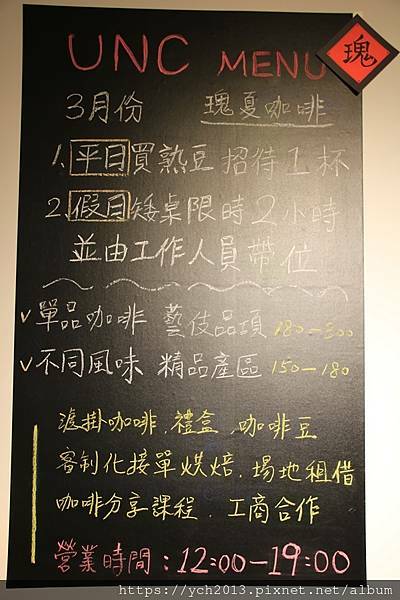 UNC MENU
瑰
3月份 瑰夏咖啡
1.平日買熟豆招待1杯
2.假日矮桌限時2小時
並由工作人員帶位
v單品咖啡 藝伎品項 180-300
v不同風味 精品產區 150-180
濾掛咖啡.禮盒.咖啡豆
客制化接單烘焙.場地租借
咖啡分享課程.工商合作
營業時間:12:00-19:00
https://ych2013.pixnet.net/album